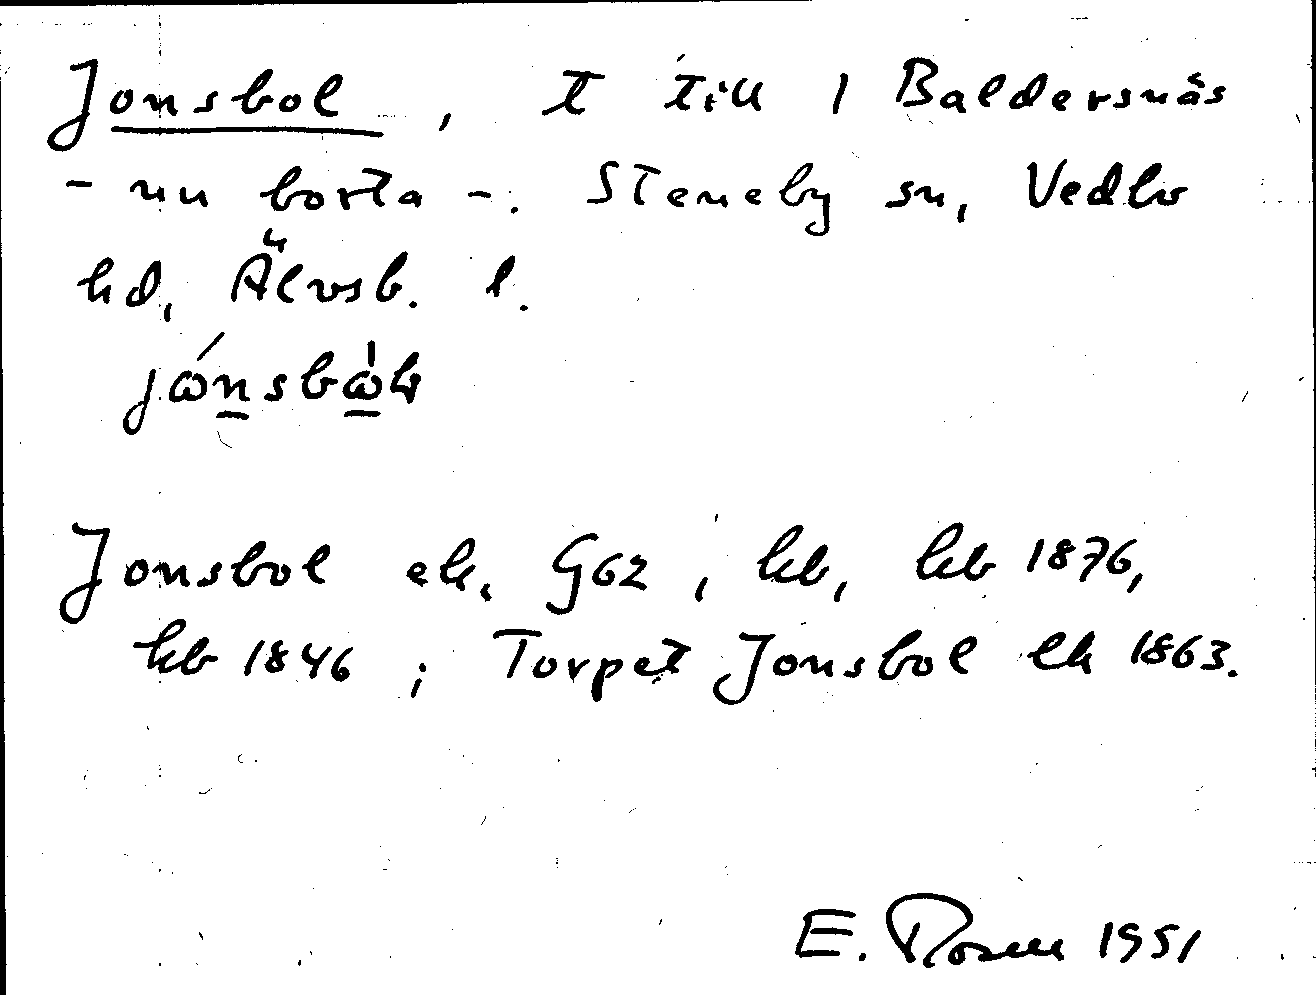 Jonsbol, t till 1 Baldersnäs
- nu borta -. Steneby sn, Vedbo
hd, Älvsb. l.
Jonsbol ek. G62, kb, kb 1876,
kb 1846; Torpet Jonsbol lk 1863.
E. Rosen 1951